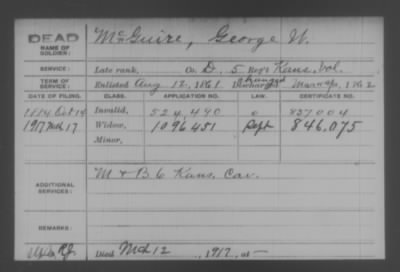 DEAD
NAME OF SOLDIER: McGuire, George W.
SERVICE: Late rank, Co. D, 5 Reg't Kans. Vol.
TERM OF SERVICE: Enlisted Aug 12, 1861 Discharged 1862
DATE OF FILING. CLASS. APPLICATION NO. LAW. CERTIFICATE NO.
1884 Oct 14 Invalid, 524,490 837004
1917 Mch 17 Widow, 1096451 Sept 846,075
Minor,
ADDITIONAL SERVICES: M & B 6 Kans. Cav.
REMARKS:
Died Mch 12, 1917, at —